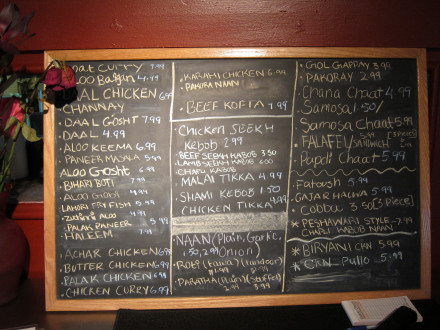 oat Curry 7.99
Aloo Baigan 4.99
DAAL CHICKEN 6.99
CHANNAY
DAAL GOSHT 7.99
DAAL 4.99
ALOO KEEMA 5.99
PANEER MASALA 5.99
Aloo Gosht 6.99
BIHARI BOTI 7.99
ALOO GOBHI 4.99
LAHORI FRY FISH 5.99
ALOO 4.99
PALAK PANEER 5.99
HALEEM 7.99
ACHAR CHICKEN 6.99
BUTTER CHICKEN 6.99
PALAK CHICKEN 6.99
CHICKEN CURRY 6.99
KARAHI CHICKEN 6.99
PAKORA NAAN
BEEF KOFTA 7.99
CHICKEN SEEKH
KeboB 2.99
BEEF SEEKH KABOB 3.50
LAMB SEEKH KABOB
MALAI TIKKA 4.99
SHAMI KEBOB 1.50
CHICKEN TIKKA 4.99
NAAN (Plain, Garlic,
1.50, 2.99, Onion)
ROTI (tawa) (tandoor)
PARATHA (Plain) (Stuffed)
2.99 3.99
GOL GAPPAY 3.99
PAKORAY 2.99
Chana Chaat 4.99
Samosa 1.50/
Samosa Chaat 5.99
FALAFEL/SANDWICH
Papdi Chaat 5.99
Fatoush 5.99
GAJAR HALWA 5.99
3.50 (3 Pieces)
* PESHAWARI STYLE 7.99
KABOB NAAN
* BIRYANI CKN 5.99
* CKN Pulio 5.99